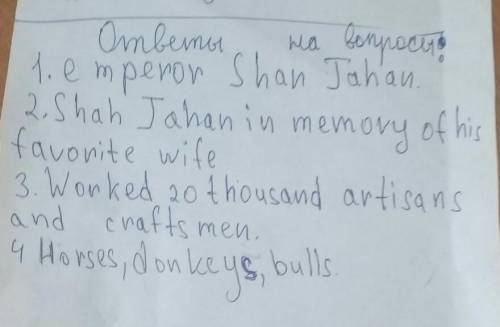 Ответы на вопросы:
1. emperor Shan Jahan.
2. Shah Jahan in memory of his
favorite wife
3. Worked 20 thousand artisans
and craftsmen.
4 Horses, donkeys, bulls.